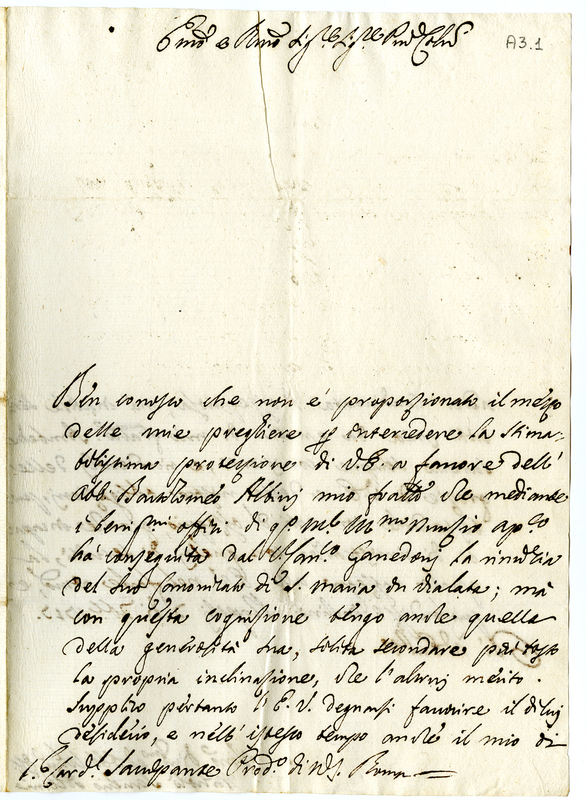 Emo e Rmo Sigre Sigre Prone Colmo
A3.1
Ben conosco che non è proporzionato il mezo
delle mie preghiere per intercedere la stima-
bilissima protezzione di V.E. a favore dell'
Abb. Bartolomeo Albinj mio frat'lo che mediante
i benigmi offizi di qto Mre Illmo Nunzio apco
hà conseguita dal Canco la rinunzia
del suo Canonicato di S. Maria in vialata; mà
con questa cognizione tengo anche quella
della generosità sua, solita secondare più tosto
la propria inclinazione, che l'altruj merito.
Supplico pertanto l'E.V. degnarsi favorire il di luj
desiderio, e nell'istesso tempo anche il mio di
Card. Prodo di N.S. Roma